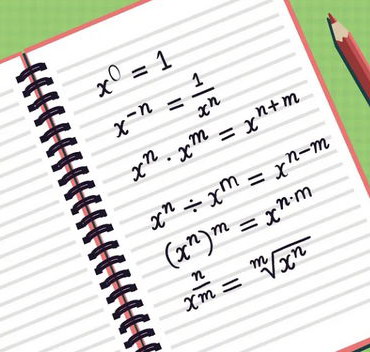 x⁰ = 1
x⁻ⁿ = 1/xⁿ
xⁿ · xᵐ = xⁿ⁺ᵐ
xⁿ ÷ xᵐ = xⁿ⁻ᵐ
(xⁿ)ᵐ = xⁿ·ᵐ
x^(n/m) = ᵐ√xⁿ